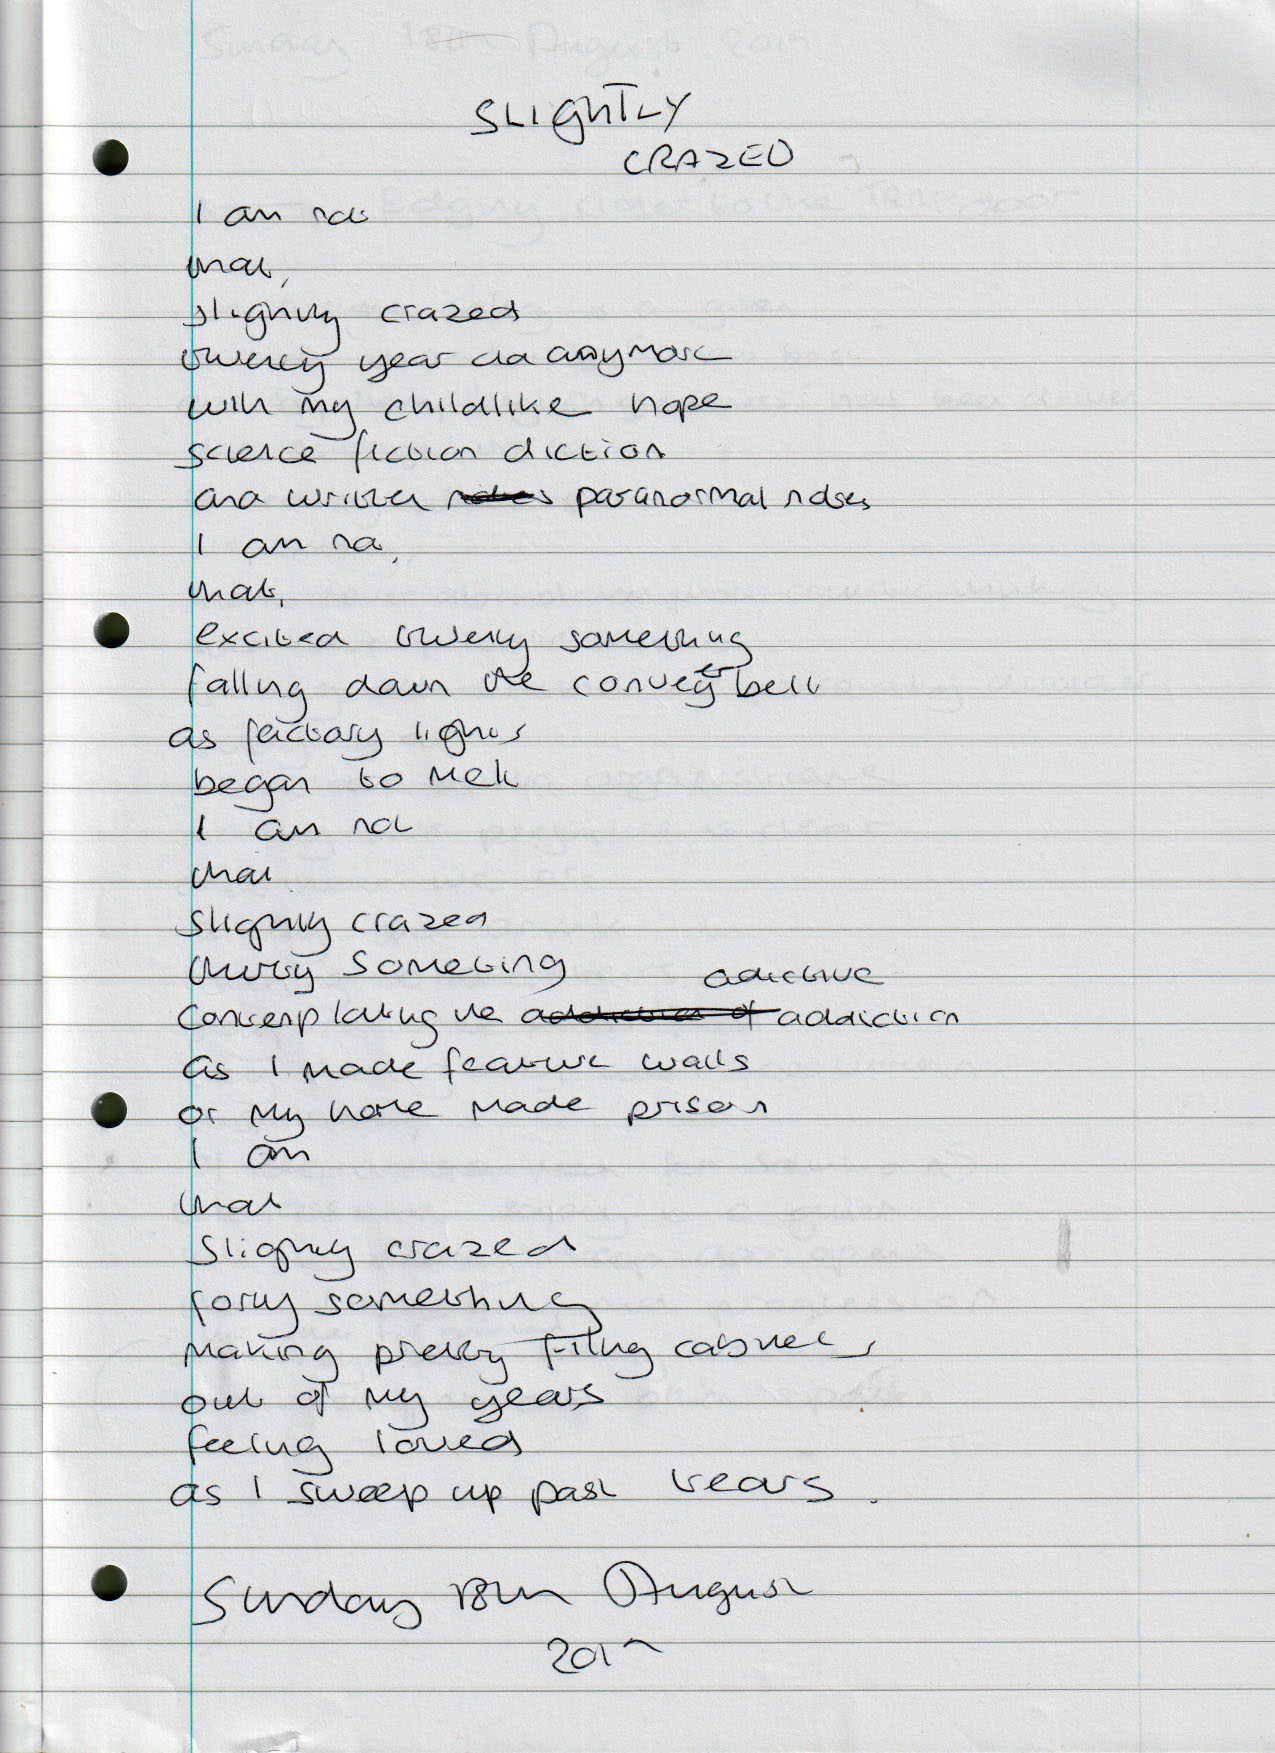 SLIGHTLY
CRAZED
I am not
that,
slightly crazed
twenty year old anymore
with my childlike hope
science fiction diction
and written notes paranormal notes
I am not,
that,
excited twenty something
falling down the conveyer belt
as factory lights
began to melt
I am not
that
slightly crazed
thirty something
adictive
contemplating the addiction of addiction
as I made feature walls
of my home made prison
I am
that
slightly crazed
forty something
making pretty filing cabinets
out of my years
feeling loved
as I sweep up past tears.
Sunday 18th August